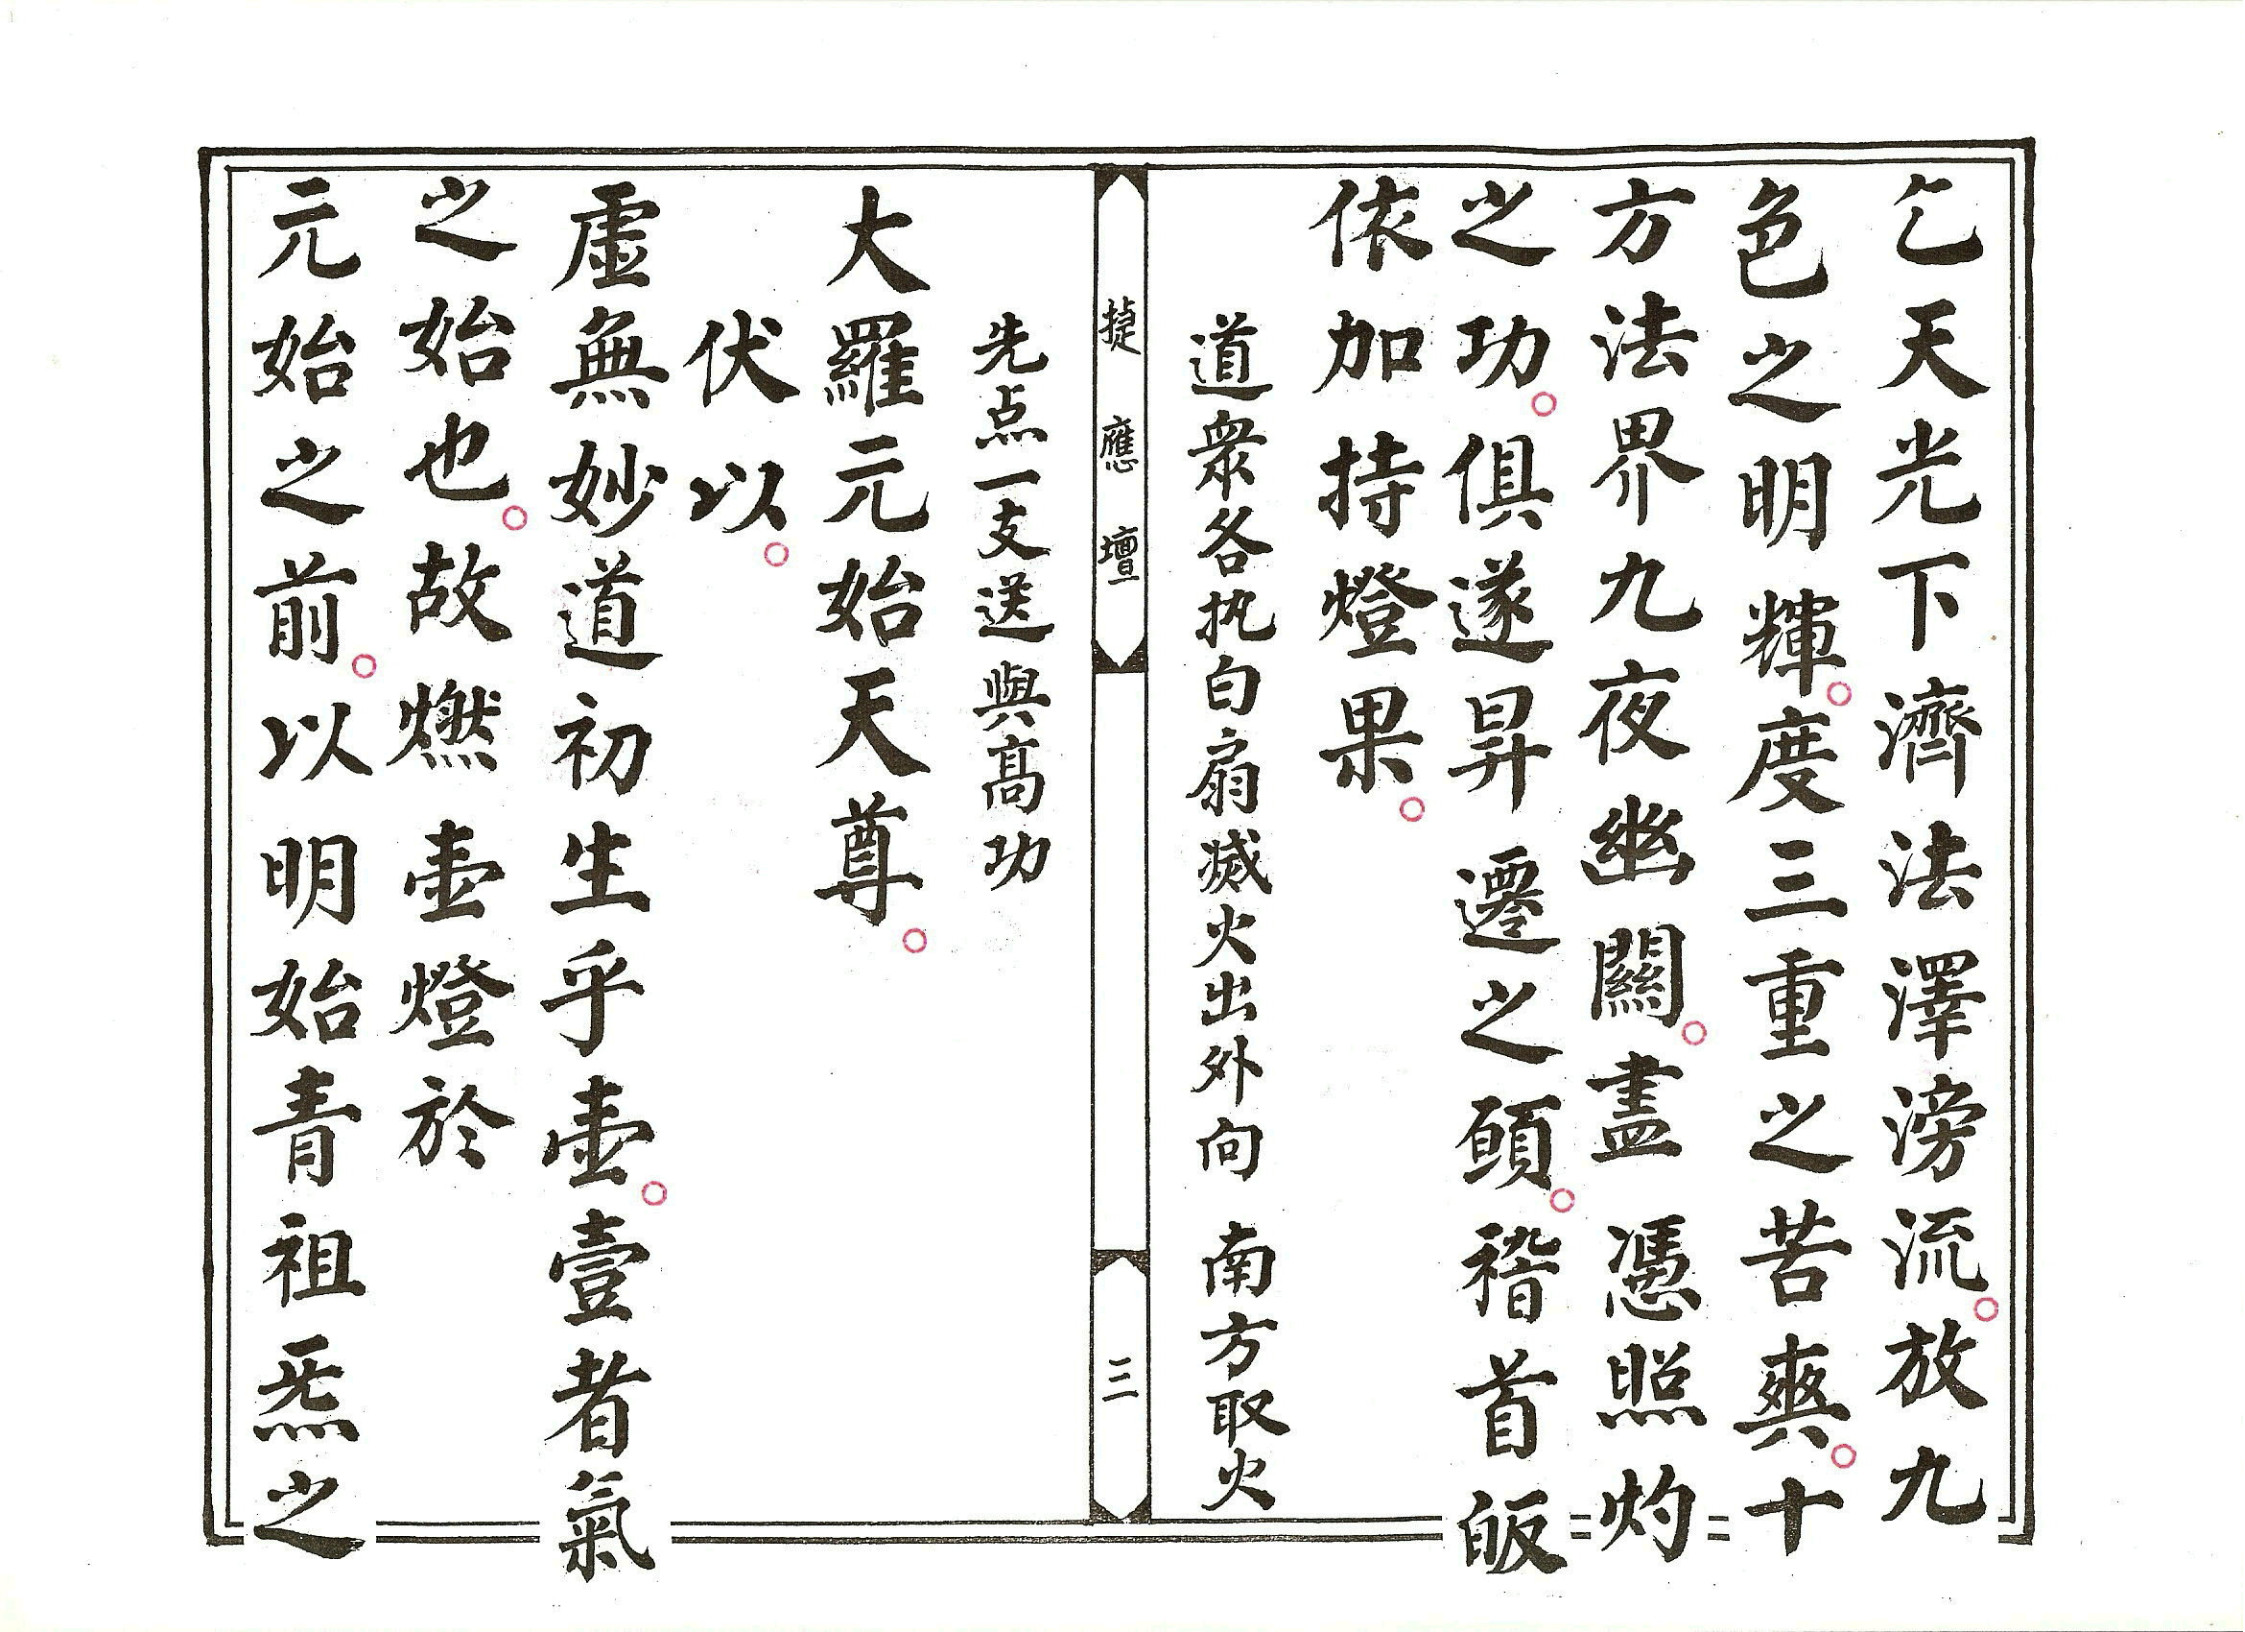 乞天光下濟法澤滂流。放九
色之明輝。度三重之苦爽。十
方法界九夜幽關。盡憑照灼
之功。俱遂昇遷之願。稽首皈
依加持燈果。
道衆各执白扇滅火出外向 南方取火
㨗應壇 三
先点一支送與高功
大羅元始天尊。
伏以。
虛無妙道初生乎壺。壹者氣
之始也。故燃壺燈於
元始之前。以明始青祖炁之